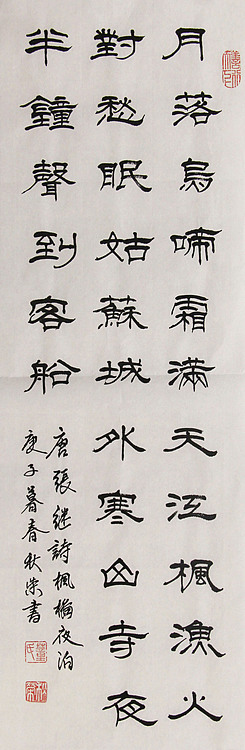 月落烏啼霜滿天江楓漁火
對愁眠姑蘇城外寒山寺夜
半鐘聲到客船
唐張继詩楓橋夜泊
庚子暮春秋書